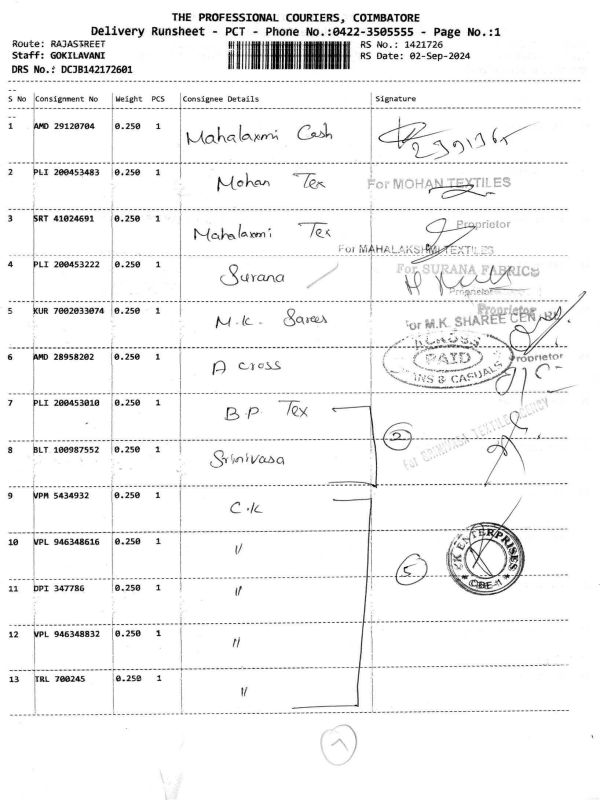 THE PROFESSIONAL COURIERS, COIMBATORE
Delivery Runsheet - PCT - Phone No.:0422-3505555 - Page No.:1
Route: RAJASTREET RS No.: 1421726
Staff: GOKILAVANI RS Date: 02-Sep-2024
DRS No.: DCJB142172601
S No Consignment No Weight PCS Consignee Details Signature
1 AMD 29120704 0.250 1 Mahalaxmi Cash
2 PLI 200453483 0.250 1 Mohan Tex For MOHAN TEXTILES
Proprietor
3 SRT 41024691 0.250 1 Mahalaxmi Tex
For MAHALAKSHMI TEXTILES
4 PLI 200453222 0.250 1 Surana For SURANA FABRICS
Proprietor
Proprietor
5 KUR 7002033074 0.250 1 M.K. Sarees For M.K. SHAREE CEN
Proprietor
6 AMD 28958202 0.250 1 A cross ACROSS PAID JEANS & CASUALS
7 PLI 200453010 0.250 1 B.P Tex
2
8 BLT 100987552 0.250 1 Srinivasa For SRINIVASA TEXTILE AGENCY
9 VPM 5434932 0.250 1 C.K
10 VPL 946348616 0.250 1 "
CK ENTERPRISES CBE-1
5
11 DPI 347786 0.250 1 "
12 VPL 946348832 0.250 1 "
13 TRL 700245 0.250 1 "